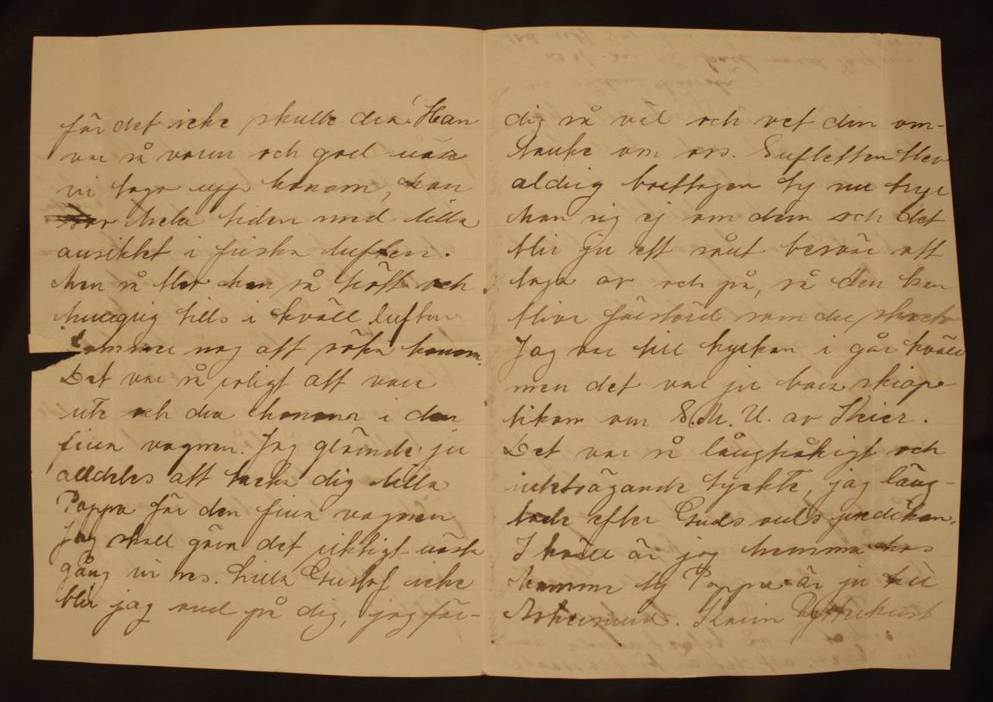 för det icke skulle dra! Han
var så varm och god när
vi togo upp honom, han
hela tiden med lilla
ansiktet i friska luften.
Men så blev han så trött och
hungrig tills i kväll luften
kommer nog att söva honom.
Det var så roligt att vara
ute och dra honom i den
fina vagnen. Jag glömde ju
alldeles att tacka dig lilla
Pappa för den fina vagnen
Jag skall göra det riktigt nästa
gång vi ses. Lilla Gustaf icke
blir jag ond på dig, jag för-
dig så väl och vet din om-
tanke om oss. Suffletten blev
aldrig borttagen ty nu bryr
man sig ej om dem och det
blir ju ett sånt besvär att
taga av och på, så den kan
bliva förstörd som du
Jag var till kyrkan i går kväll
men det var ju bara skiop-
tikon om S.M.U. av
Det var så långtråkigt och
intetsägande tyckte jag läng-
tade efter Guds ords predikan.
I kväll är jag hemma hos
Mamma ty Pappa är ju till
Askersund.